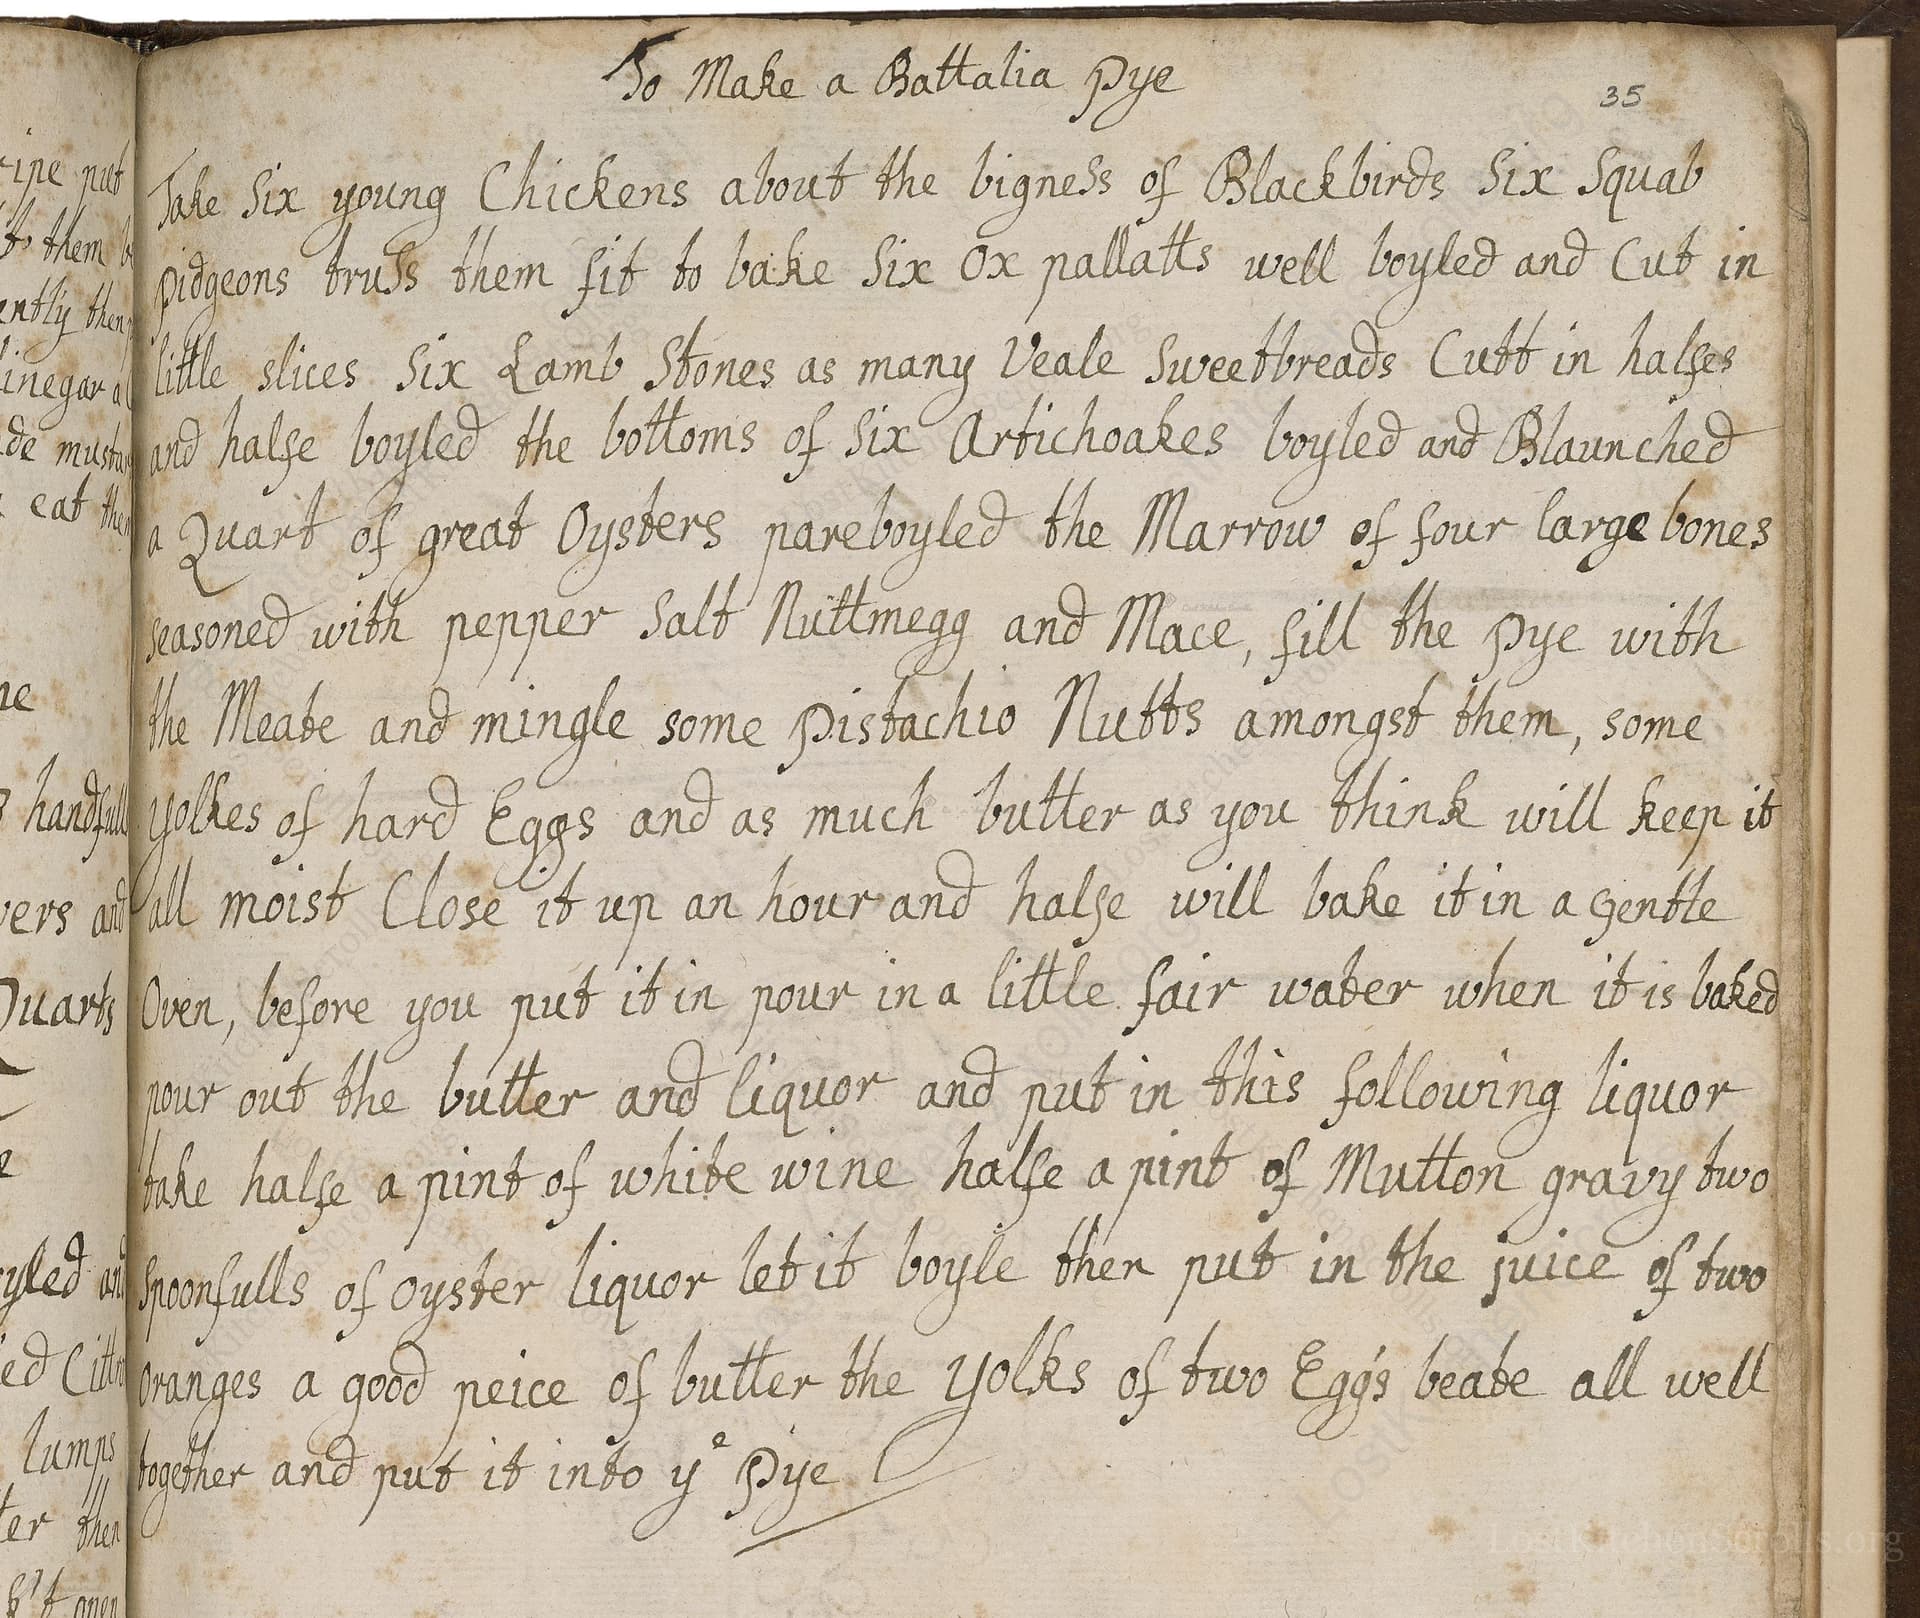 To Make a Battalia Pye
35
Take Six young Chickens about the bigness of Blackbirds Six Squab
pidgeons truss them fit to bake Six Ox pallatts well boyled and Cut in
little slices Six Lamb Stones as many Veale Sweetbreads Cutt in halfes
and halfe boyled the bottoms of Six Artichoakes boyled and Blaunched
a Quart of great Oysters pareboyled the Marrow of four large bones
seasoned with pepper Salt Nuttmegg and Mace, fill the Pye with
the Meate and mingle some Pistachio Nutts amongst them, some
yolkes of hard Eggs and as much butter as you think will keep it
all moist Close it up an hour and halfe will bake it in a Gentle
Oven, before you put it in pour in a little fair water when it is baked
pour out the butter and liquor and put in this following liquor
take halfe a pint of white wine halfe a pint of Mutton gravy two
Spoonfulls of Oyster liquor let it boyle then put in the juice of two
Oranges a good peice of butter the yolks of two Eggs beate all well
together and put it into yᵉ Pye
ripe put
them
ently then
mustar
eat them
handfulls
and
Quarts
lumps
then
LostKitchenScrolls.org